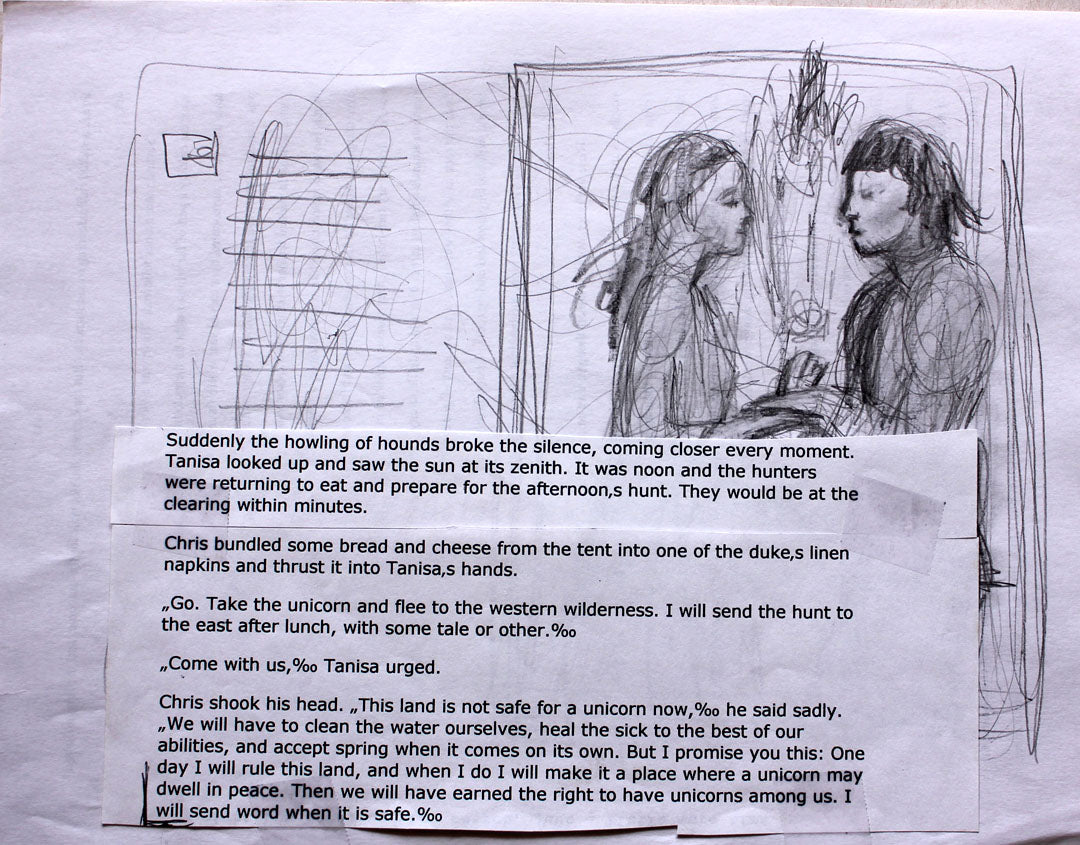 Suddenly the howling of hounds broke the silence, coming closer every moment.
Tanisa looked up and saw the sun at its zenith. It was noon and the hunters
were returning to eat and prepare for the afternoon,s hunt. They would be at the
clearing within minutes.
Chris bundled some bread and cheese from the tent into one of the duke,s linen
napkins and thrust it into Tanisa,s hands.
„Go. Take the unicorn and flee to the western wilderness. I will send the hunt to
the east after lunch, with some tale or other.‰
„Come with us,‰ Tanisa urged.
Chris shook his head. „This land is not safe for a unicorn now,‰ he said sadly.
„We will have to clean the water ourselves, heal the sick to the best of our
abilities, and accept spring when it comes on its own. But I promise you this: One
day I will rule this land, and when I do I will make it a place where a unicorn may
dwell in peace. Then we will have earned the right to have unicorns among us. I
will send word when it is safe.‰